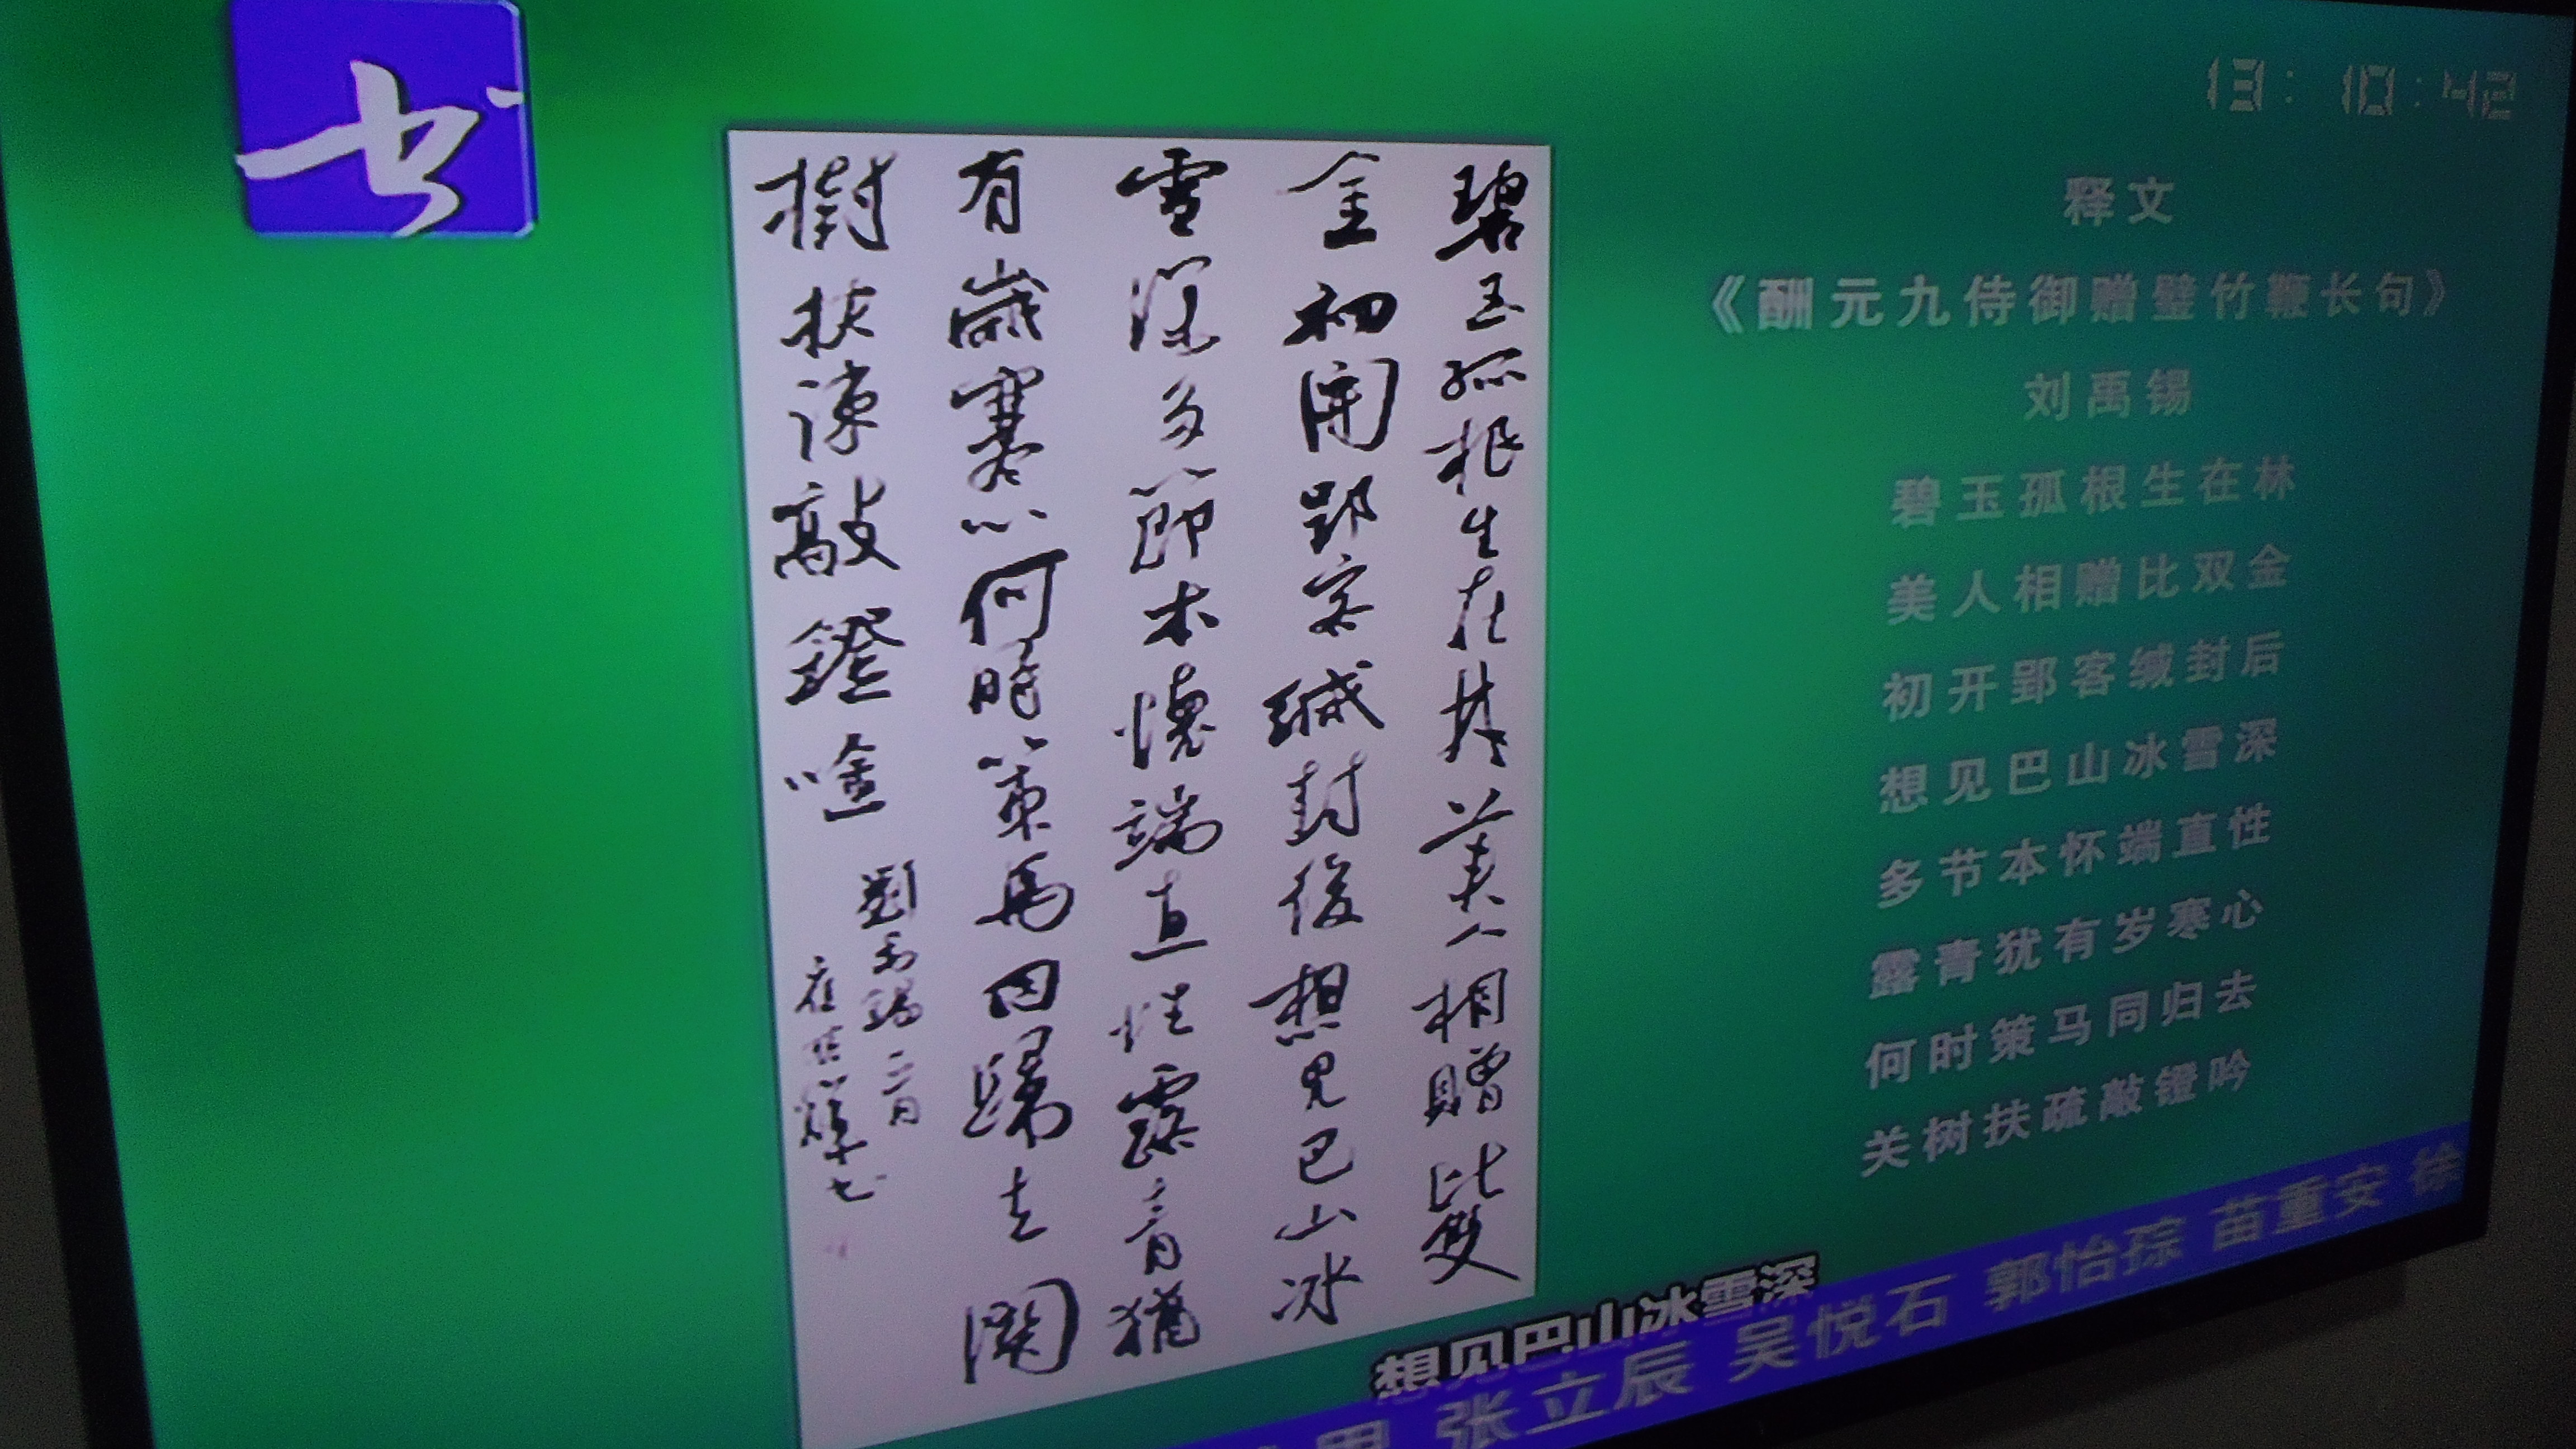 书
13:10:42
碧玉孤根生在林美人相贈比雙
金初開郢客緘封後想見巴山冰
雪深多節本懷端直性露青猶
有歲寒心何時策馬同歸去關
樹扶疎敲鐙吟
劉禹錫 二首
释文
《酬元九侍御赠璧竹鞭长句》
刘禹锡
碧玉孤根生在林
美人相赠比双金
初开郢客缄封后
想见巴山冰雪深
多节本怀端直性
露青犹有岁寒心
何时策马同归去
关树扶疏敲镫吟
想见巴山冰雪深
张立辰 吴悦石 郭怡孮 苗重安 徐